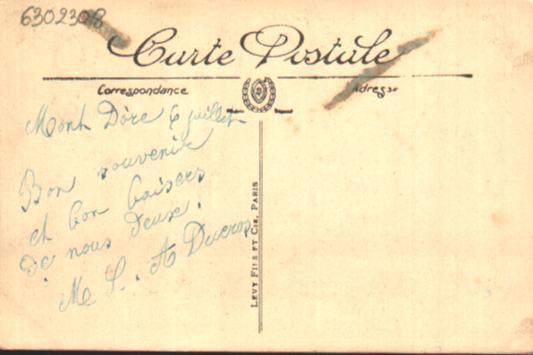 6302308
Carte Postale
Correspondance
Adresse
Mont Dore 6 juillet
Bon souvenir
et bon baisers
de nous deux.
M L. A Ducros
LEVY FILS ET CIE, PARIS